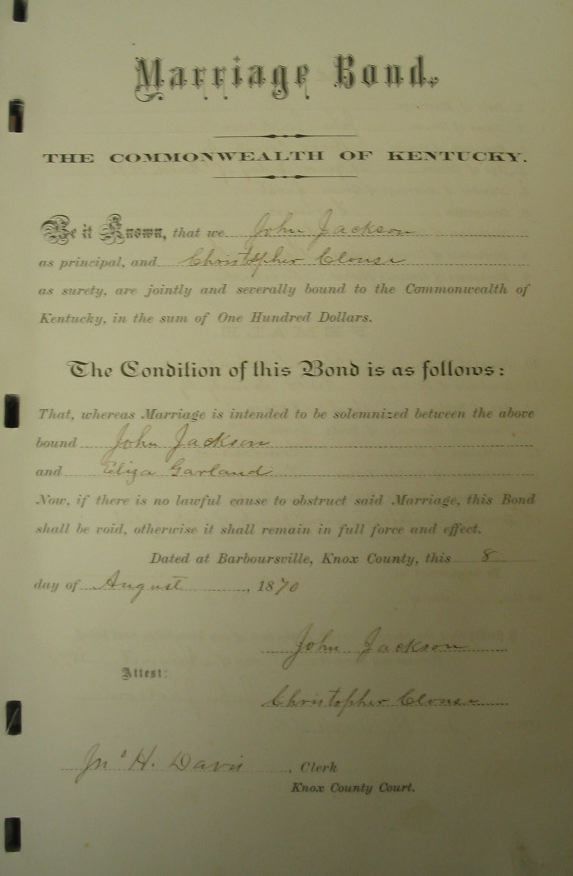 Marriage Bond.
THE COMMONWEALTH OF KENTUCKY.
Be it Known, that we John Jackson
as principal, and Christopher Clouse
as surety, are jointly and severally bound to the Commonwealth of
Kentucky, in the sum of One Hundred Dollars.
The Condition of this Bond is as follows:
That, whereas Marriage is intended to be solemnized between the above
bound John Jackson
and Eliza Garland
Now, if there is no lawful cause to obstruct said Marriage, this Bond
shall be void, otherwise it shall remain in full force and effect.
Dated at Barboursville, Knox County, this 8
day of August, 1870
John Jackson
Attest:
Christopher Clouse
Jno H. Davis, Clerk
Knox County Court.